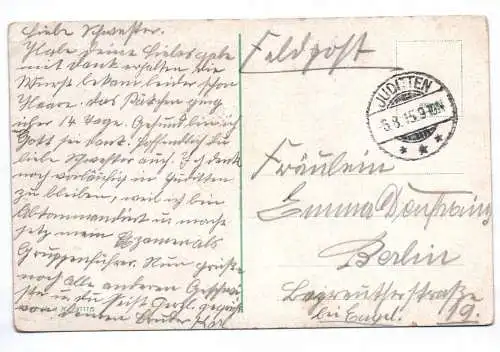 Liebe Schwester.
Habe deine Liebesgabe
mit dank erhalten. die
Wurst bekam leider schon
Haare. das Päckchen ging
über 14 Tage. Gesund bin ich
Gott sei dank. Hoffentlich du
liebe Schwester auch. Ich denk
noch vorläufig in Juditten
zu bleiben, weil ich bin
Abkommandiert u. mache
jetz mein Examen als
Gruppenführer. Nun grüße
noch alle anderen
du seist herzl. gegrüßt
von deinem Bruder
Feldpost
JUDITTEN
5.8.15.9-10N
Fräulein
Emma
Berlin
Bayreutherstraße
19.
bei Engel.